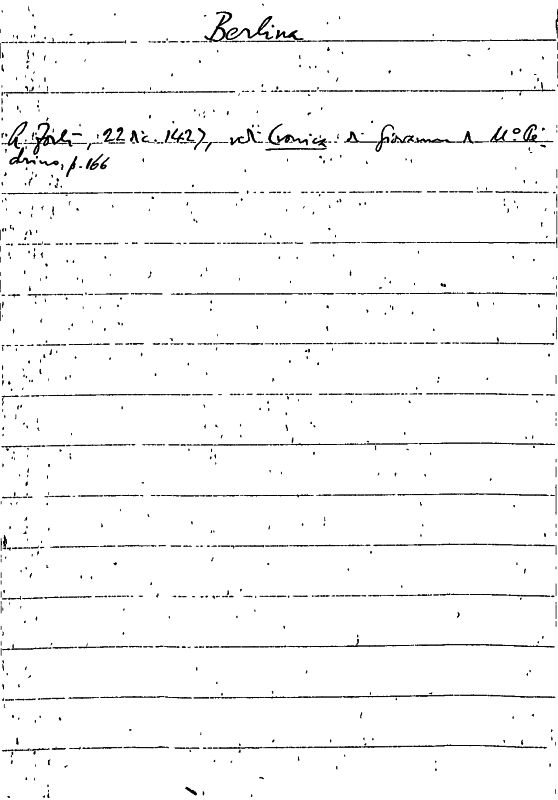 Berlina
A Forlì, 22 dic. 1427, vedi Cronica di Giovanni di M° Pe-
drino, p. 166